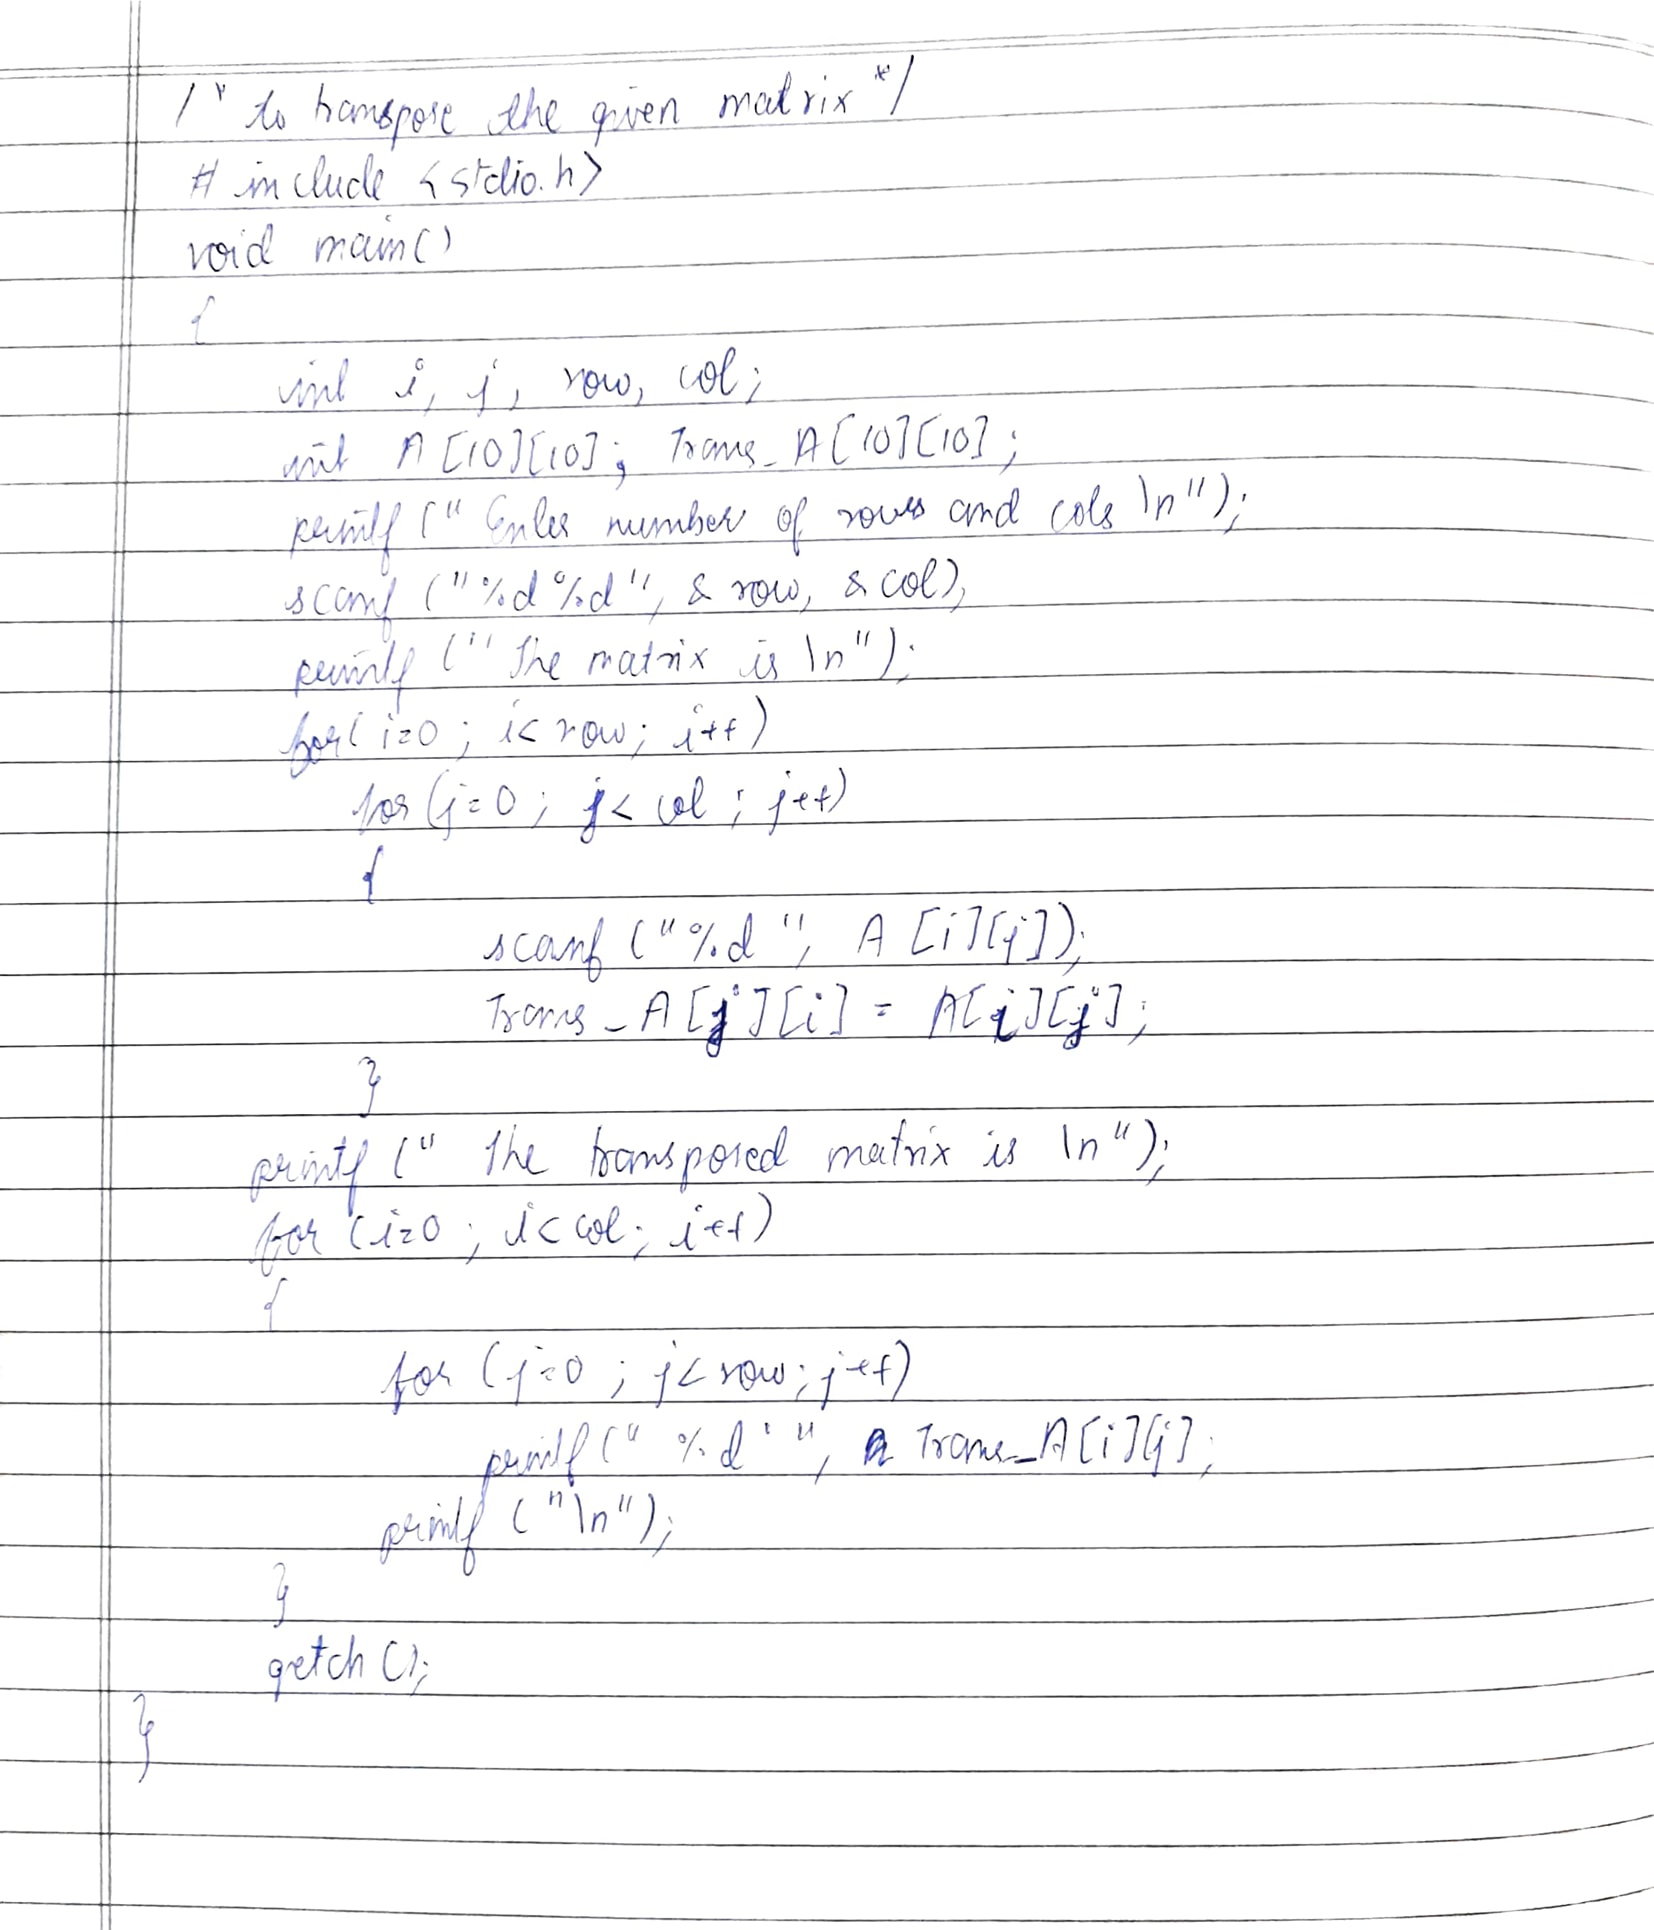 /* to transpose the given matrix */
# include <stdio.h>
void main()
{
int i, j, row, col;
int A [10][10]; Trans_A[10][10];
printf (" Enter number of rows and cols \n");
scanf ("%d %d", & row, & col);
printf (" The matrix is \n");
for( i=0 ; i< row; i++)
for (j=0 ; j< col ; j++)
{
scanf ("%d ", A [i][j]);
Trans_A[j][i] = A[i][j];
}
printf (" The transposed matrix is \n");
for (i=0 ; i<col; i++)
{
for (j=0 ; j< row; j++)
printf (" %d ' ", Trans_A[i][j];
printf ("\n");
}
getch ();
}